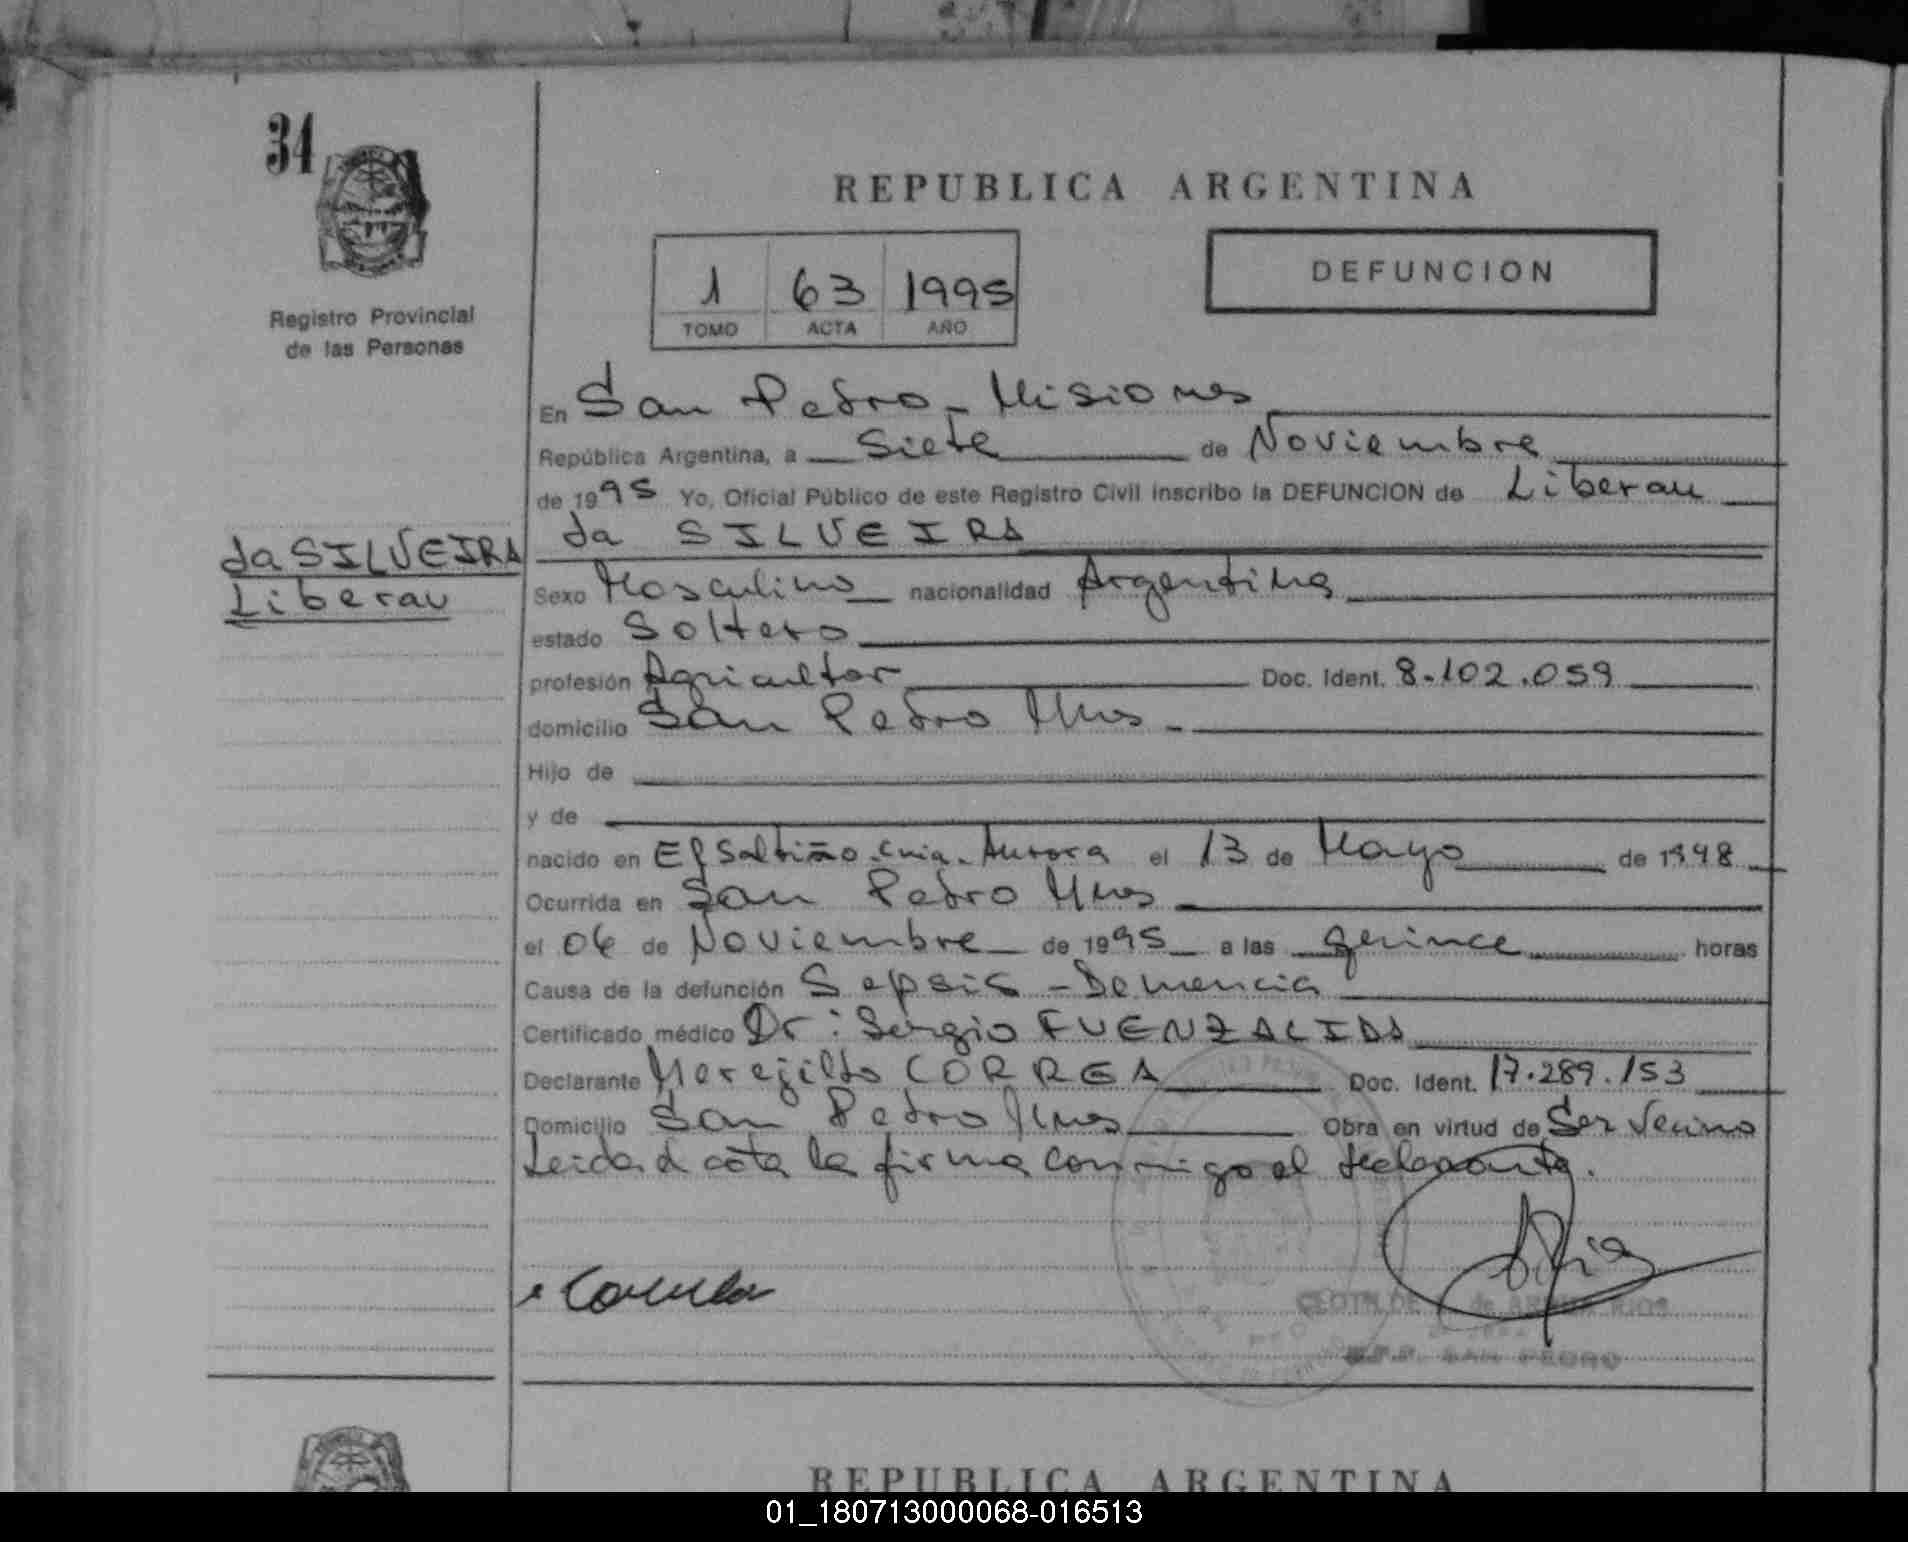 34
REPUBLICA ARGENTINA
1 63 1995
TOMO ACTA AÑO
DEFUNCION
Registro Provincial
de las Personas
En San Pedro - Misiones
República Argentina, a Siete de Noviembre
de 1995 Yo, Oficial Público de este Registro Civil inscribo la DEFUNCION de Liberau
da SILVEIRA
da SILVEIRA
Liberau
Sexo Masculino nacionalidad Argentina
estado Soltero
profesión Agricultor Doc. Ident. 8.102.059
domicilio San Pedro Mnes -
Hijo de
y de
nacido en El Saltiño. Cnia. Aurora el 13 de Mayo de 1948
Ocurrida en San Pedro Mnes
el 06 de Noviembre de 1995 a las quince horas
Causa de la defunción Sepsis - Demencia
Certificado médico Dr: Sergio FUENZALIDA
Declarante Meregildo CORREA Doc. Ident. 17.289.153
Domicilio San Pedro Mnes Obra en virtud de Ser Vecino
Leida el acta la firma conmigo el
Correa
CLOTILDE de RIOS
SAN PEDRO
REPUBLICA ARGENTINA
01_180713000068-016513